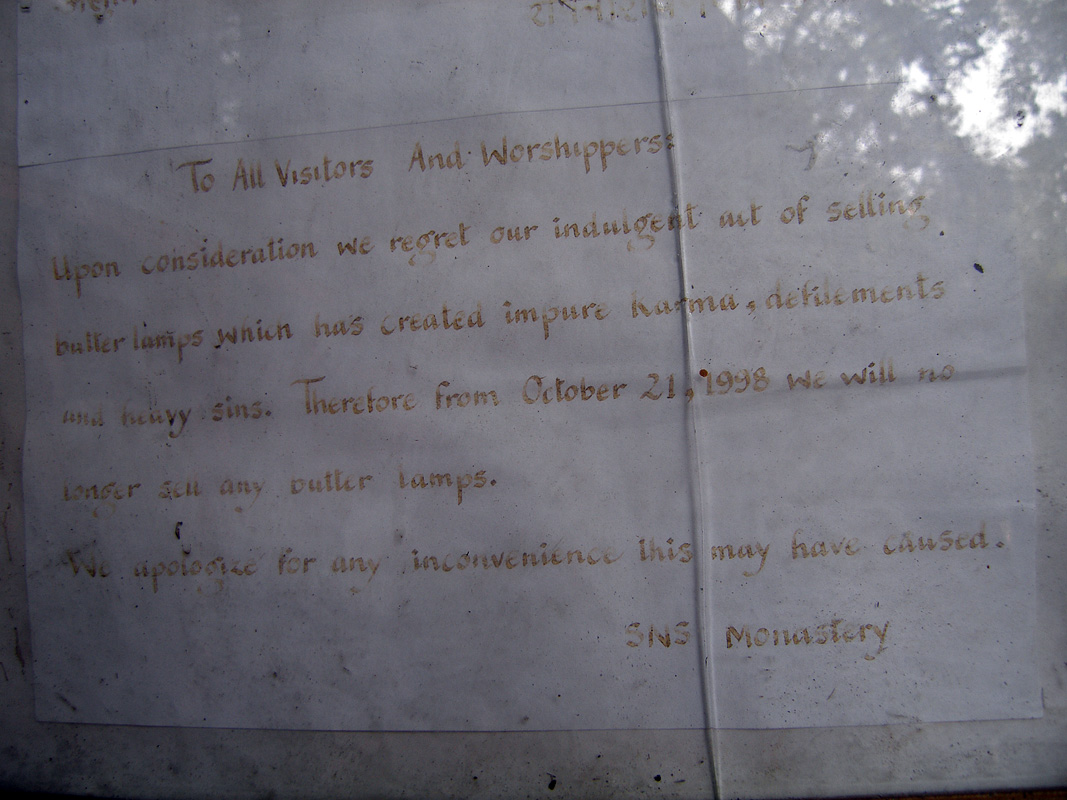 To All Visitors And Worshippers:
Upon consideration we regret our indulgent act of selling
butter lamps which has created impure karma, defilements
and heavy sins. Therefore from October 21, 1998 we will no
longer sell any butter lamps.
We apologize for any inconvenience this may have caused.
SNS Monastery